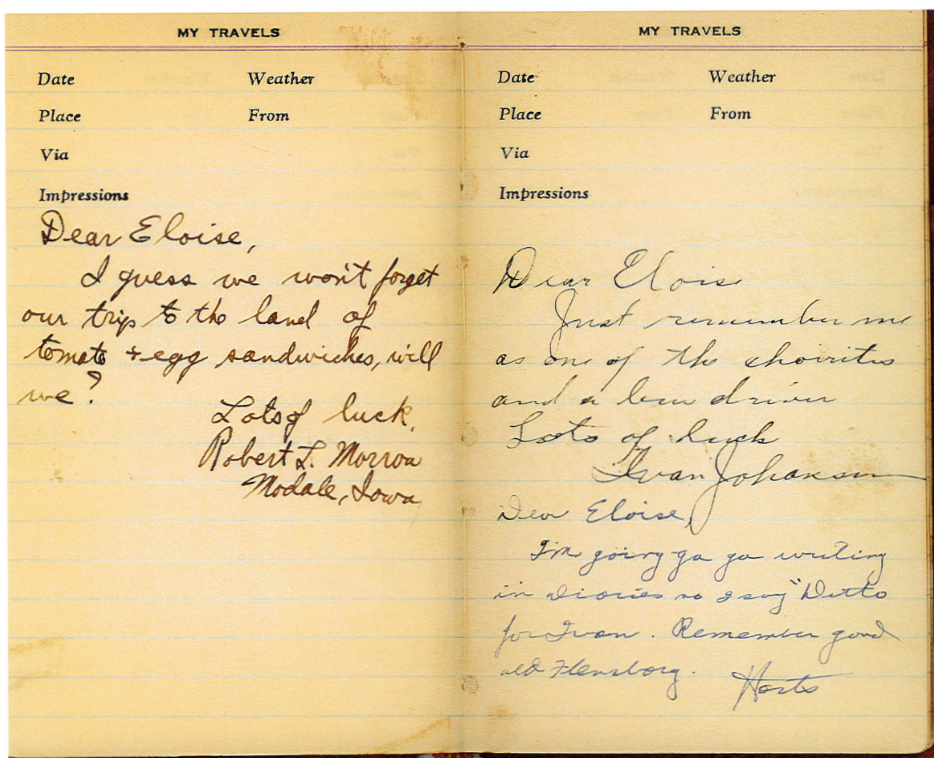 MY TRAVELS
Date Weather
Place From
Via
Impressions
Dear Eloise,
I guess we won't forget
our trip to the land of
tomato + egg sandwiches, will
we?
Lots of luck,
Robert L. Morrow
Modale, Iowa
MY TRAVELS
Date Weather
Place From
Via
Impressions
Dear Elois
Just remember me
as one of the
and a driver
Lots of luck
Ivan Johansen
Dear Eloise,
I'm going ga ga writing
in diaries so I say "Ditto
for Ivan. Remember good
old Flensborg.